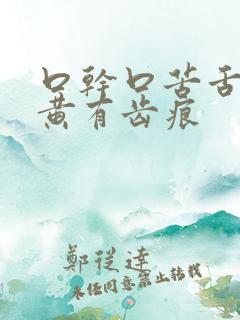 口幹口苦舌
黄有齿痕
鄭從達
未经同意禁止转载